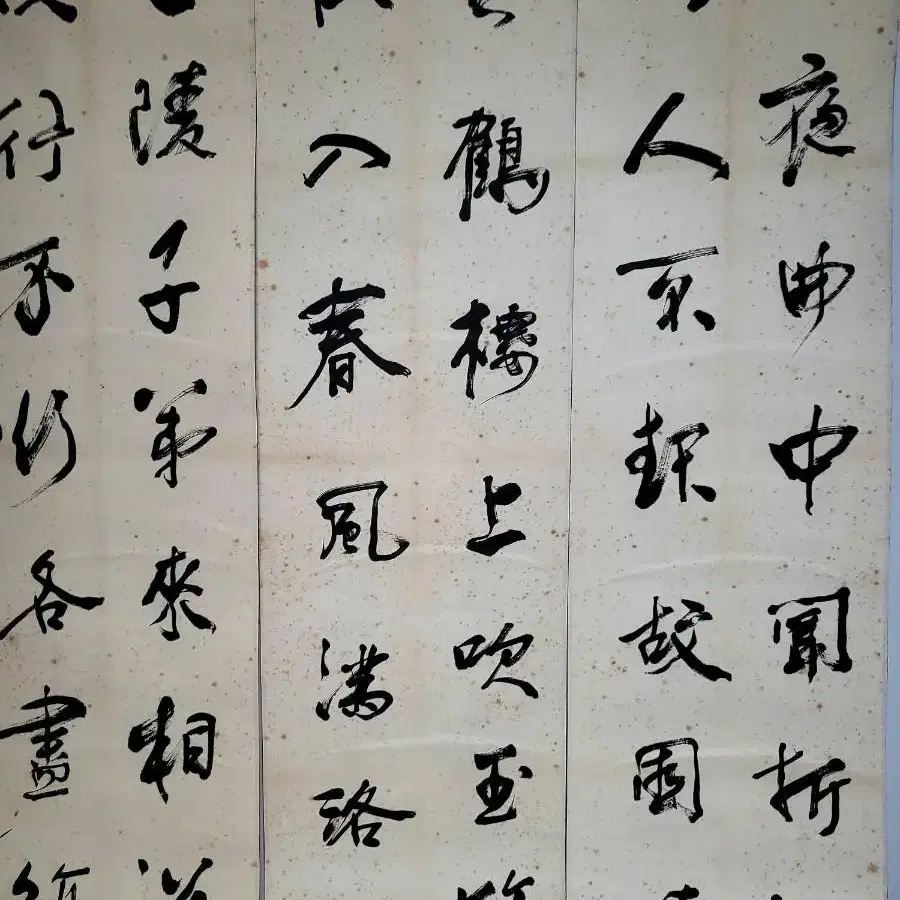 夜曲中聞折
人不起故園
鶴樓上吹玉
入春風滿洛
陵子弟來相
行不行各盡